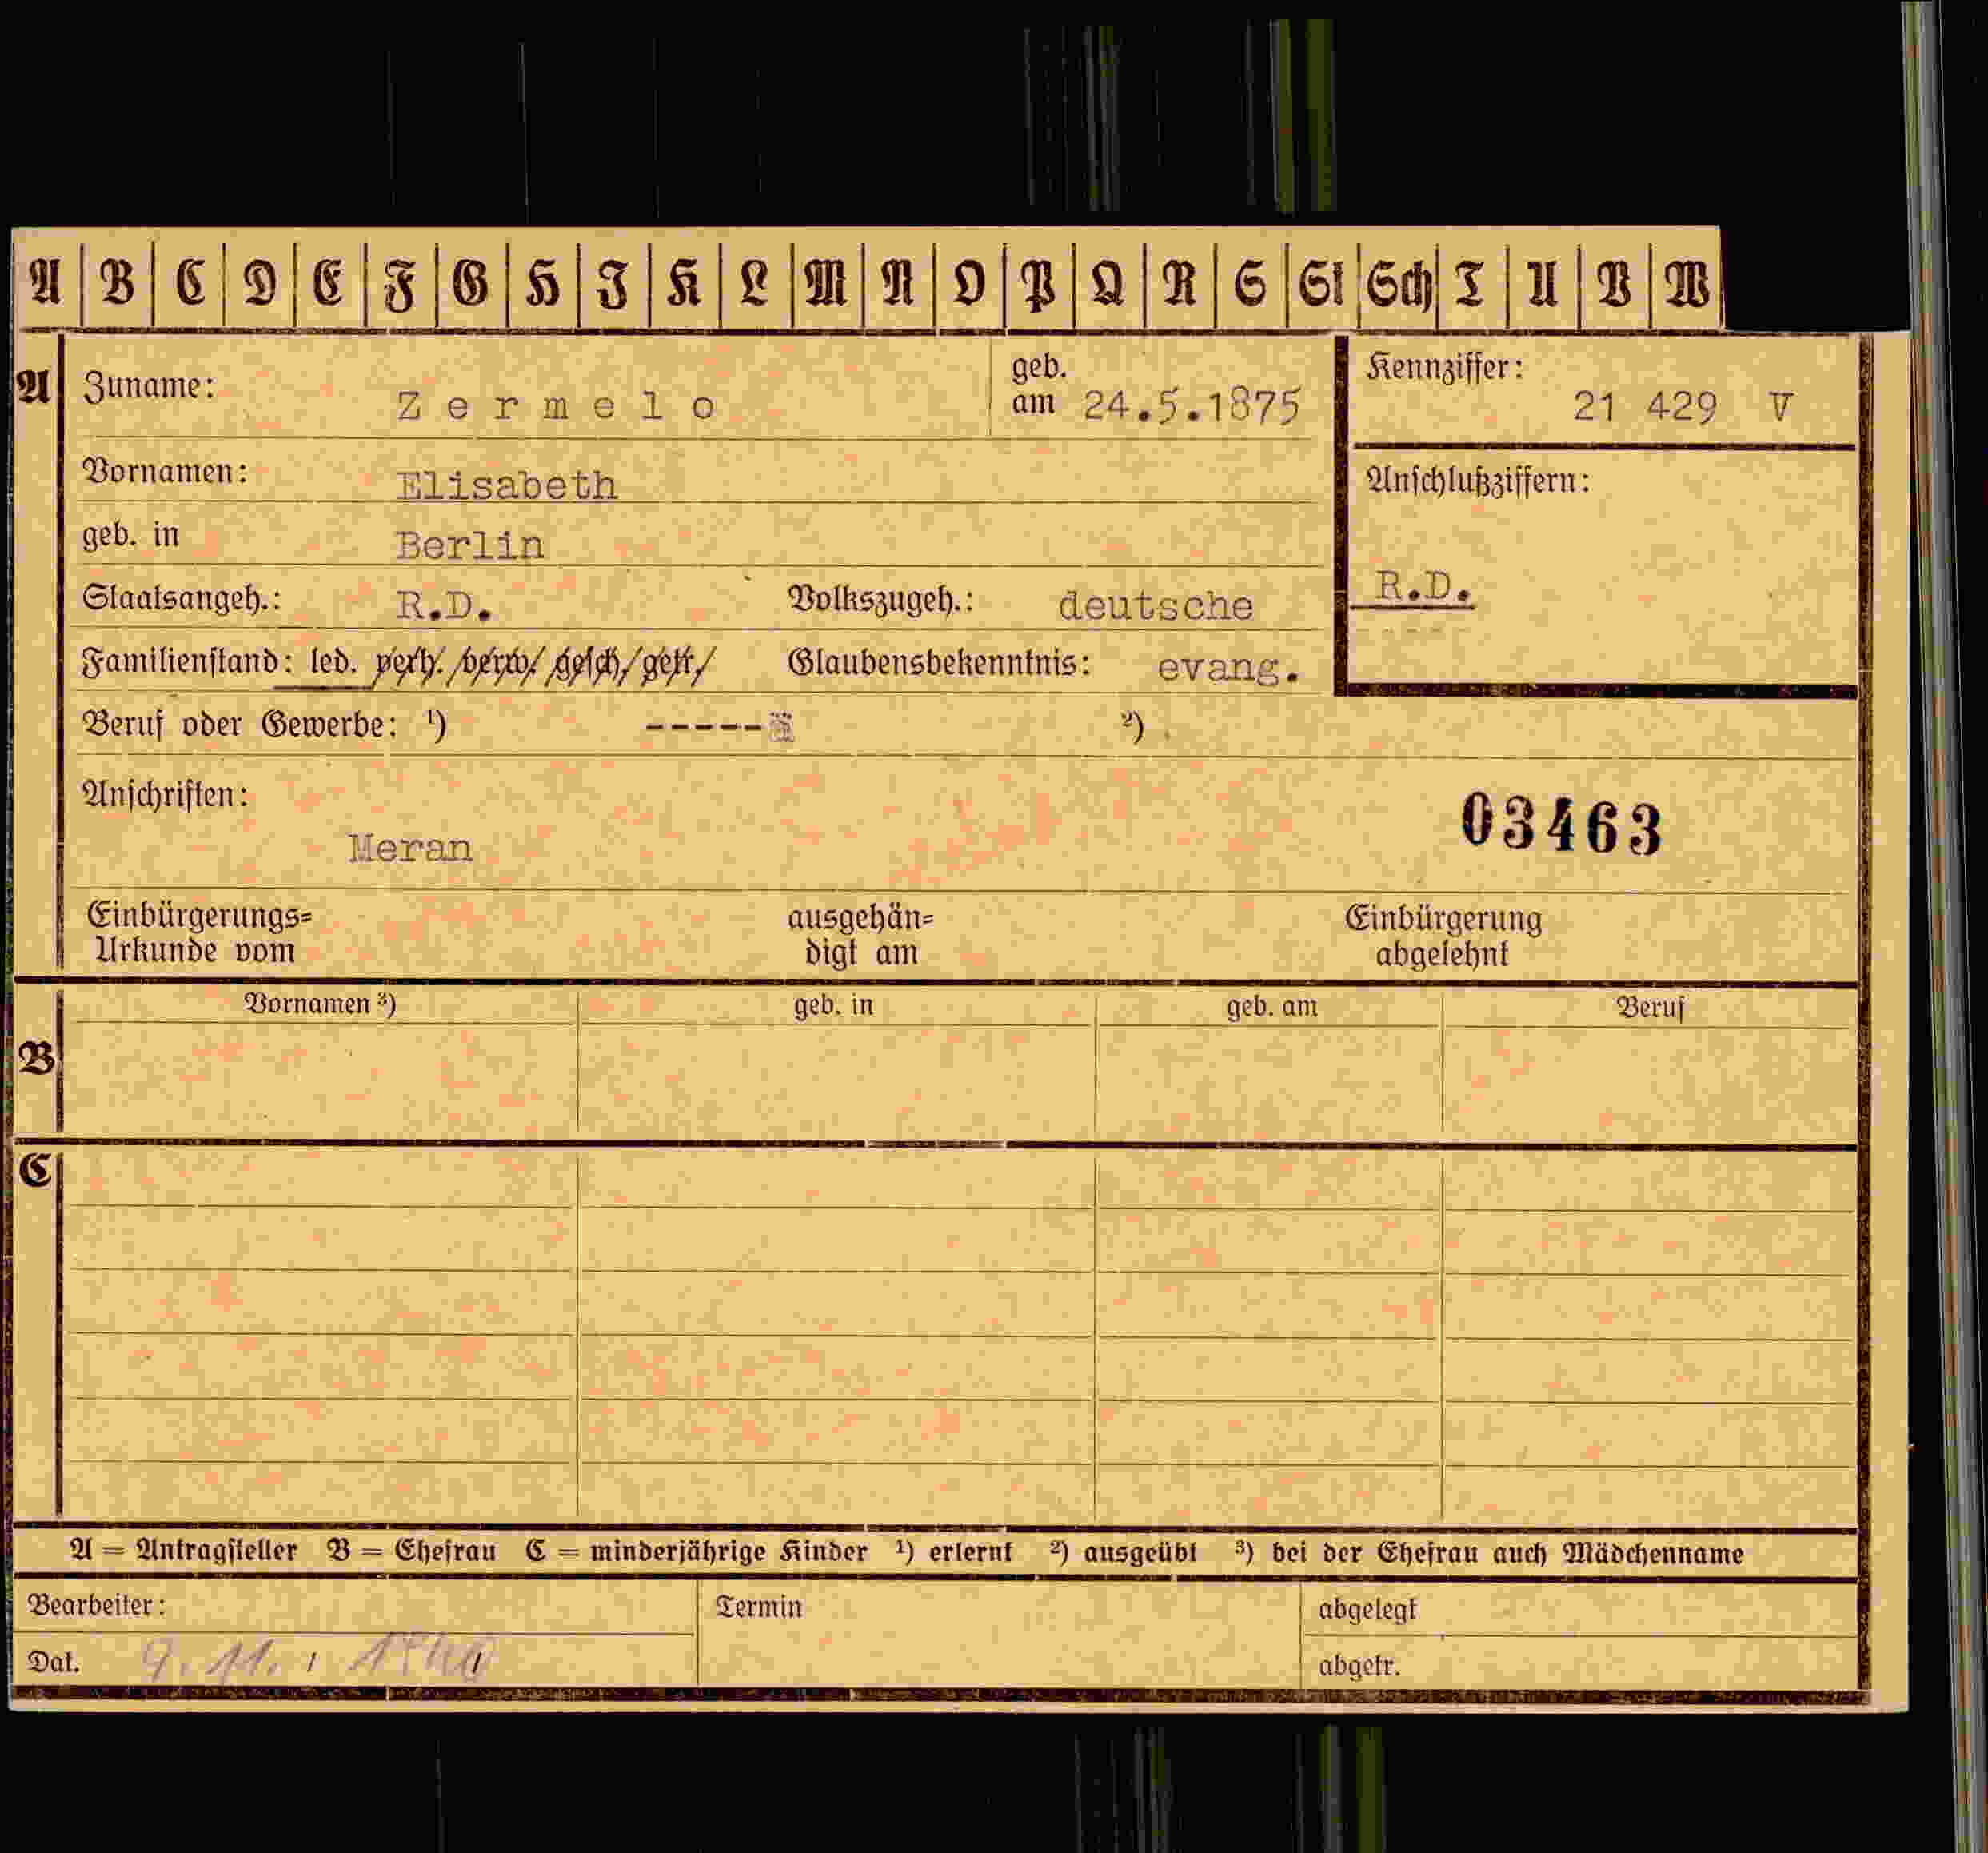 A B C D E F G H I K L M N O P Q R S St Sch T U V W
A Zuname: Zermelo geb. am 24.5.1875 Kennziffer: 21 429 V
Vornamen: Elisabeth Anschlußziffern:
geb. in Berlin
Staatsangeh.: R.D. Volkszugeh.: deutsche R.D.
Familienstand: led. verh. verw. gesch. getr. Glaubensbekenntnis: evang.
Beruf oder Gewerbe: ¹) ----- ²)
Anschriften: 03463
Meran
Einbürgerungs= ausgehän= Einbürgerung
Urkunde vom digt am abgelehnt
Vornamen ³) geb. in geb. am Beruf
B
C
A = Antragsteller B = Ehefrau C = minderjährige Kinder ¹) erlernt ²) ausgeübt ³) bei der Ehefrau auch Mädchenname
Bearbeiter: Termin abgelegt
Dat. 9.11. 1940 abgetr.